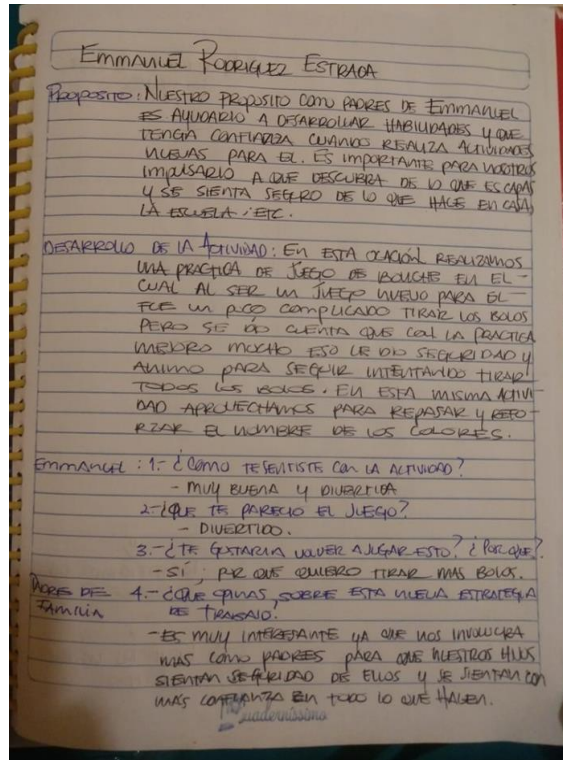 EMMANUEL RODRIGUEZ ESTRADA
PROPOSITO: NUESTRO PROPOSITO COMO PADRES DE EMMANUEL
ES AYUDARLO A DESARROLLAR HABILIDADES Y QUE
TENGA CONFIANZA CUANDO REALIZA ACTIVIDADES
NUEVAS PARA EL. ES IMPORTANTE PARA NOSOTROS
IMPULSARLO A QUE DESCUBRA DE LO QUE ES CAPAS
Y SE SIENTA SEGURO DE LO QUE HACE EN CASA,
LA ESCUELA, ETC.
DESARROLLO DE LA ACTIVIDAD: EN ESTA OCACIÓN REALIZAMOS
UNA PRACTICA DE JUEGO DE BOLICHE EN EL -
CUAL AL SER UN JUEGO NUEVO PARA EL -
FUE UN POCO COMPLICADO TIRAR LOS BOLOS
PERO SE DIO CUENTA QUE CON LA PRACTICA
MEJORO MUCHO ESO LE DIO SEGURIDAD Y
ANIMO PARA SEGUIR INTENTANDO TIRAR
TODOS LOS BOLOS. EN ESTA MISMA ACTIVI-
DAD APROVECHAMOS PARA REPASAR Y REFO-
RZAR EL NOMBRE DE LOS COLORES.
EMMANUEL: 1.- ¿COMO TE SENTISTE CON LA ACTIVIDAD?
- MUY BUENA Y DIVERTIDA
2.- ¿QUE TE PARECIO EL JUEGO?
- DIVERTIDO.
3.- ¿TE GUSTARIA VOLVER A JUGAR ESTO? ¿POR QUE?
- SÍ, POR QUE QUIERO TIRAR MAS BOLOS.
PADRE DE FAMILIA 4.- ¿QUE OPINAS SOBRE ESTA NUEVA ESTRATEGIA
DE TRABAJO?
- ES MUY INTERESANTE YA QUE NOS INVOLUCRA
MAS COMO PADRES PARA QUE NUESTROS HIJOS
SIENTAN SEGURIDAD DE ELLOS Y SE SIENTAN CON
MAS CONFIANZA EN TODO LO QUE HACEN.